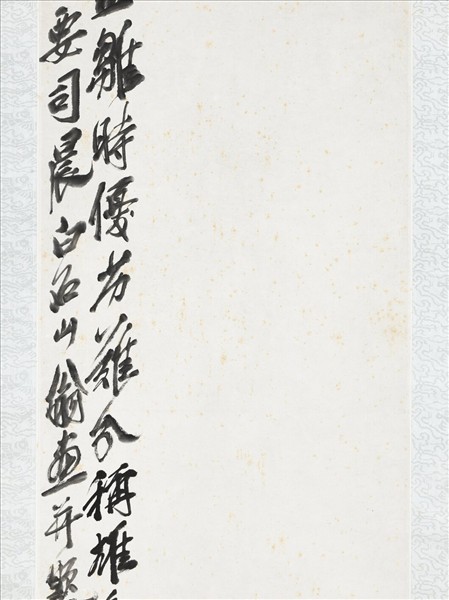 雛時優劣難分稱雄
要司晨白石山翁畫并題